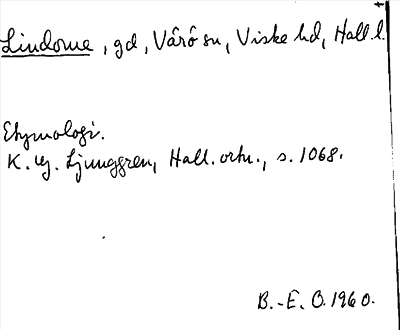 Lindome, gd, Värö sn, Viske hd, Hall. l.
Etymologi.
K. G. Ljunggren, Hall. ortn., s. 1068.
B.-E. O. 1960.